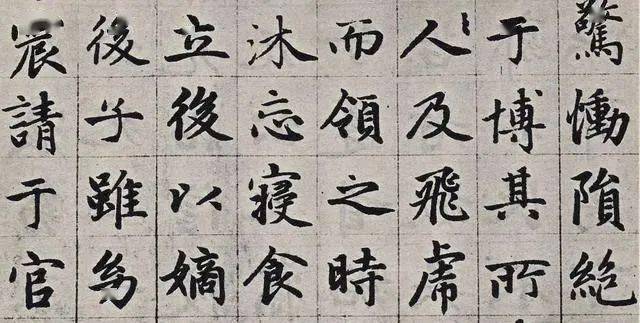 驚慟隕絕
于博其所
人及飛虏
而領之時
沐忘寝食
立後以嫡
後子雖為
宸請于官